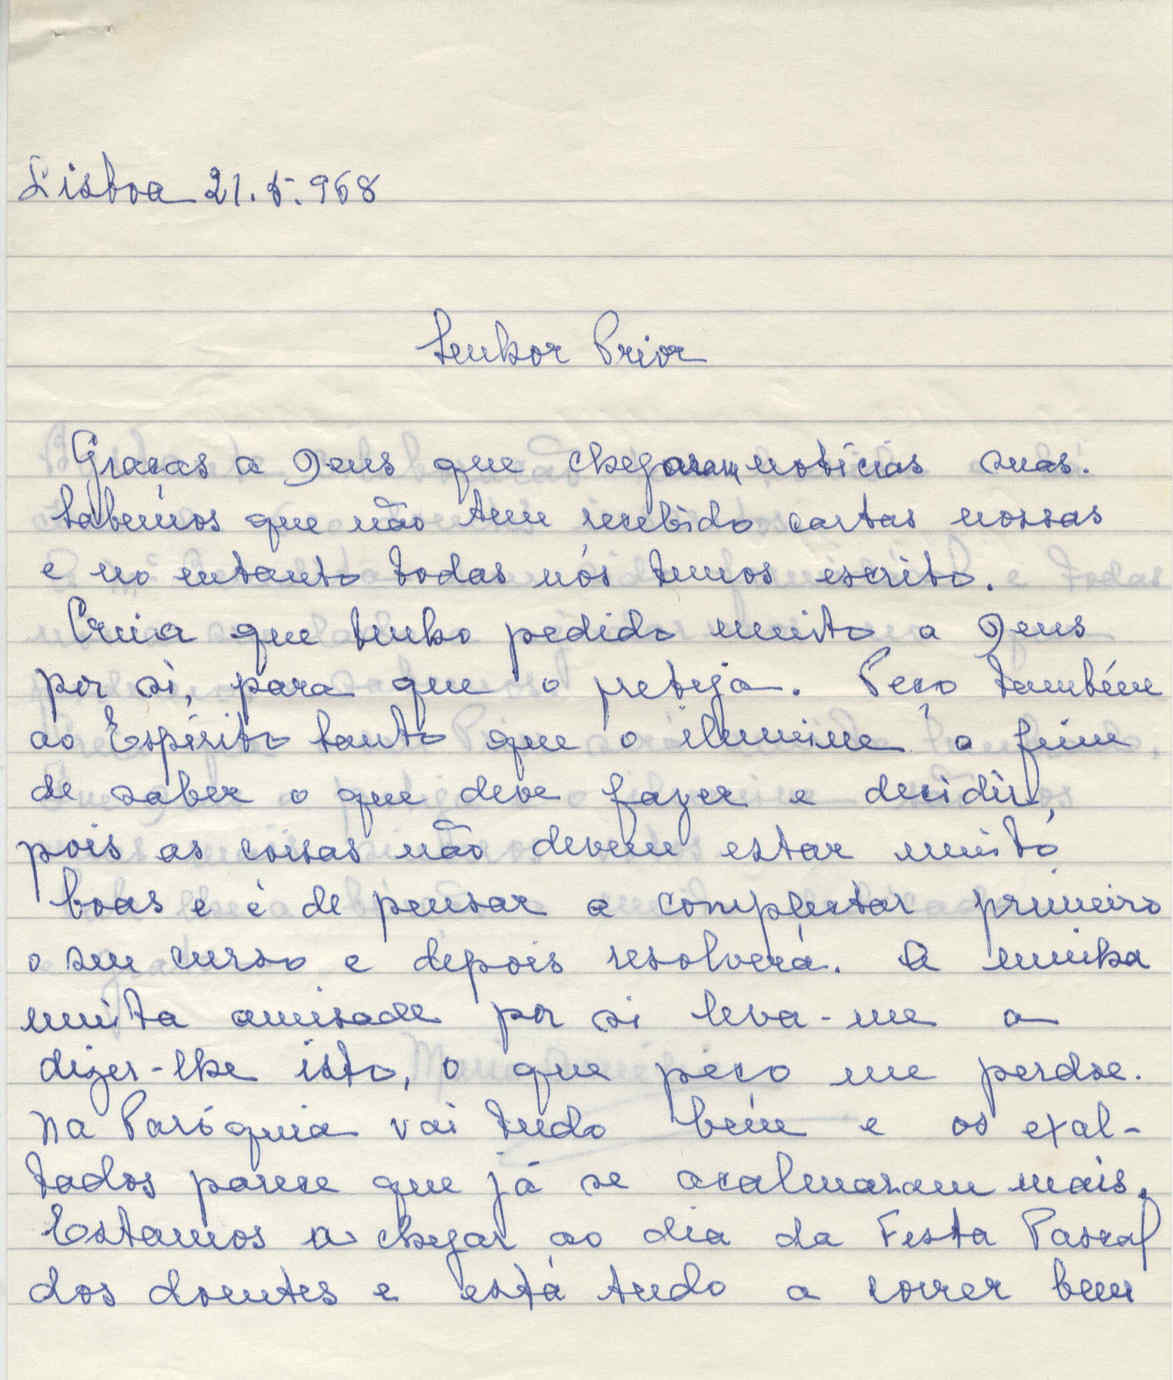 Lisboa 21.5.968
Senhor Prior
Graças a Deus que chegaram notícias suas.
Sabemos que não tem recebido cartas nossas
e no entanto todas nós temos escrito.
Creia que tenho pedido muito a Deus
por si, para que o proteja. Peço também
ao Espírito Santo que o ilumine a fim
de saber o que deve fazer e decidir,
pois as coisas não devem estar muito
boas e é de pensar a completar primeiro
o seu curso e depois resolverá. A minha
muita amizade por si leva-me a
dizer-lhe isto, o que peço me perdoe.
Na Paróquia vai tudo bem e os exal-
tados parece que já se acalmaram mais.
Estamos a chegar ao dia da Festa Pascal
dos doentes e está tudo a correr bem